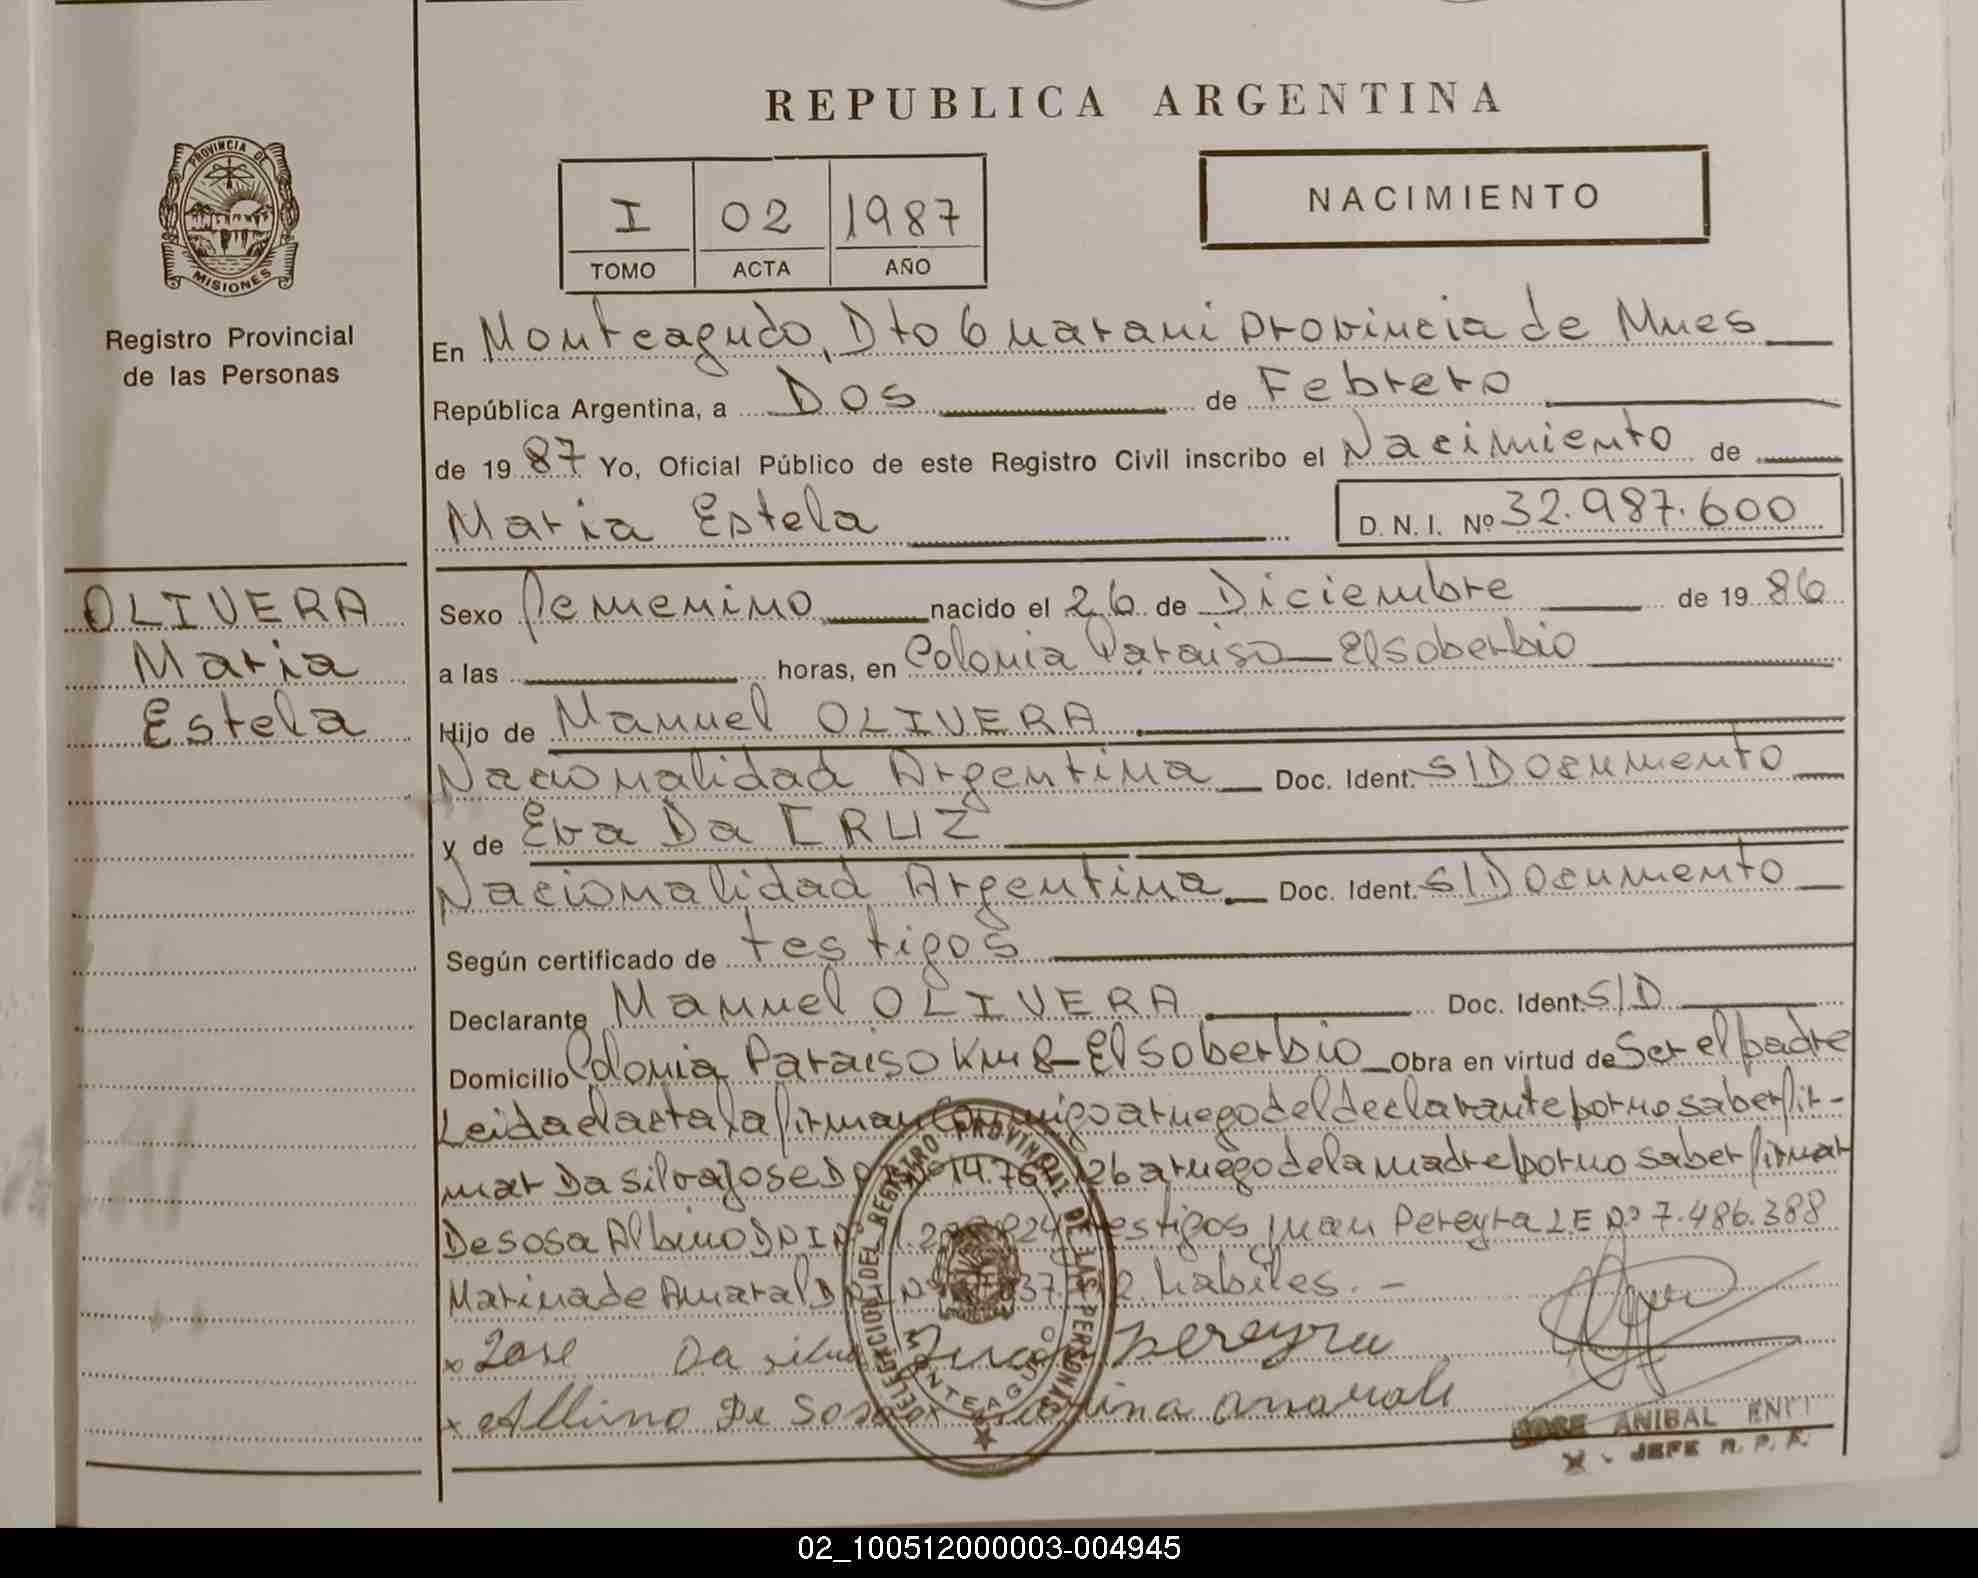 REPUBLICA ARGENTINA
PROVINCIA DE MISIONES
NACIMIENTO
I 02 1987
TOMO ACTA AÑO
Registro Provincial
de las Personas
En Monteagudo, Dto Guarani provincia de Mnes
República Argentina, a Dos de Febrero
de 1987 Yo, Oficial Público de este Registro Civil inscribo el Nacimiento de
Maria Estela D. N. I. Nº 32.987.600
OLIVERA
Maria
Estela
Sexo femenino nacido el 26 de Diciembre de 1986
a las horas, en Colonia Paraiso - El soberbio
Hijo de Manuel OLIVERA
Nacionalidad Argentina Doc. Ident. S/Documento
y de Eva Da CRUZ
Nacionalidad Argentina Doc. Ident. S/Documento
Según certificado de testigos
Declarante Manuel OLIVERA Doc. Ident. S/D
Domicilio Colonia Paraiso Km 8 - El soberbio Obra en virtud de Ser el padre
Leida el acta la firman Conmigo a ruego del declarante por no saber fir-
mar Da silva Jose 14.76 126 a ruego de la madre por no saber firmar
De sosa Albino DNI testigos Juan Pereyra L E Nº 7.486.388
Marina de Amaral DNI Nº 037. habiles. -
x Jose Da silva Juan Pereyra
x Albino De Sosa Marina amaral
DELEGACION DEL REGISTRO PROVINCIAL DE LAS PERSONAS
MONTEAGUDO
JOSE ANIBAL
JEFE R. P. P.
02_100512000003-004945